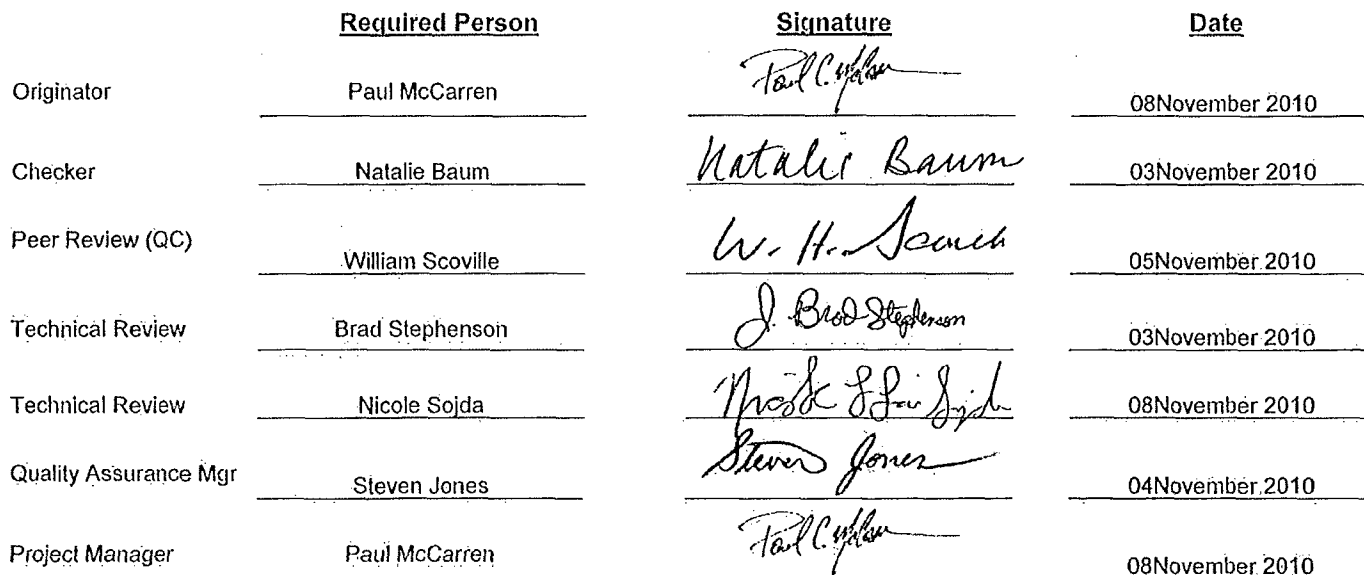 Required Person Signature Date
Originator Paul McCarren 08November 2010
Checker Natalie Baum Natalie Baum 03November 2010
Peer Review (QC) William Scoville W. H. 05November 2010
Technical Review Brad Stephenson J. Brad Stephenson 03November 2010
Technical Review Nicole Sojda 08November 2010
Quality Assurance Mgr Steven Jones Steven Jones 04November 2010
Project Manager Paul McCarren 08November 2010